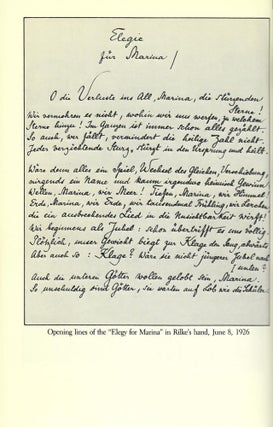 Elegie
für Marina
O die Verluste ins All, Marina, die stürzenden
Sterne!
Wir vermehren es nicht, wohin wir uns werfen, zu welchem
Sterne hinzu! Im Ganzen ist immer schon alles gezählt.
So auch, wer fällt, vermindert die heilige Zahl nicht.
Jeder verzichtende Sturz, stürzt in den Ursprung und heilt.
Wäre denn alles ein Spiel, Wechsel des Gleichen, Verschiebung,
nirgends ein Name und kaum irgendwo heimisch Gewinn?
Wellen, Marina, wir Meer! Tiefen, Marina, wir Himmel!
Erde, Marina, wir Erde, wir tausendmal Frühling, wie Lerchen,
die ein ausbrechendes Lied in die Unsichtbarkeit wirft!
Wir beginnens als Jubel: schon übertrifft es uns völlig.
Plötzlich, unser Gewicht biegt zur Klage den Sang abwärts.
Aber auch so: Klage? Wäre sie nicht jüngerer Jubel nach
unten?
Auch die unteren Götter wollen gelobt sein, Marina.
So unschuldig sind Götter, sie warten auf Lob wie die Schüler.
Opening lines of the "Elegy for Marina" in Rilke's hand, June 8, 1926